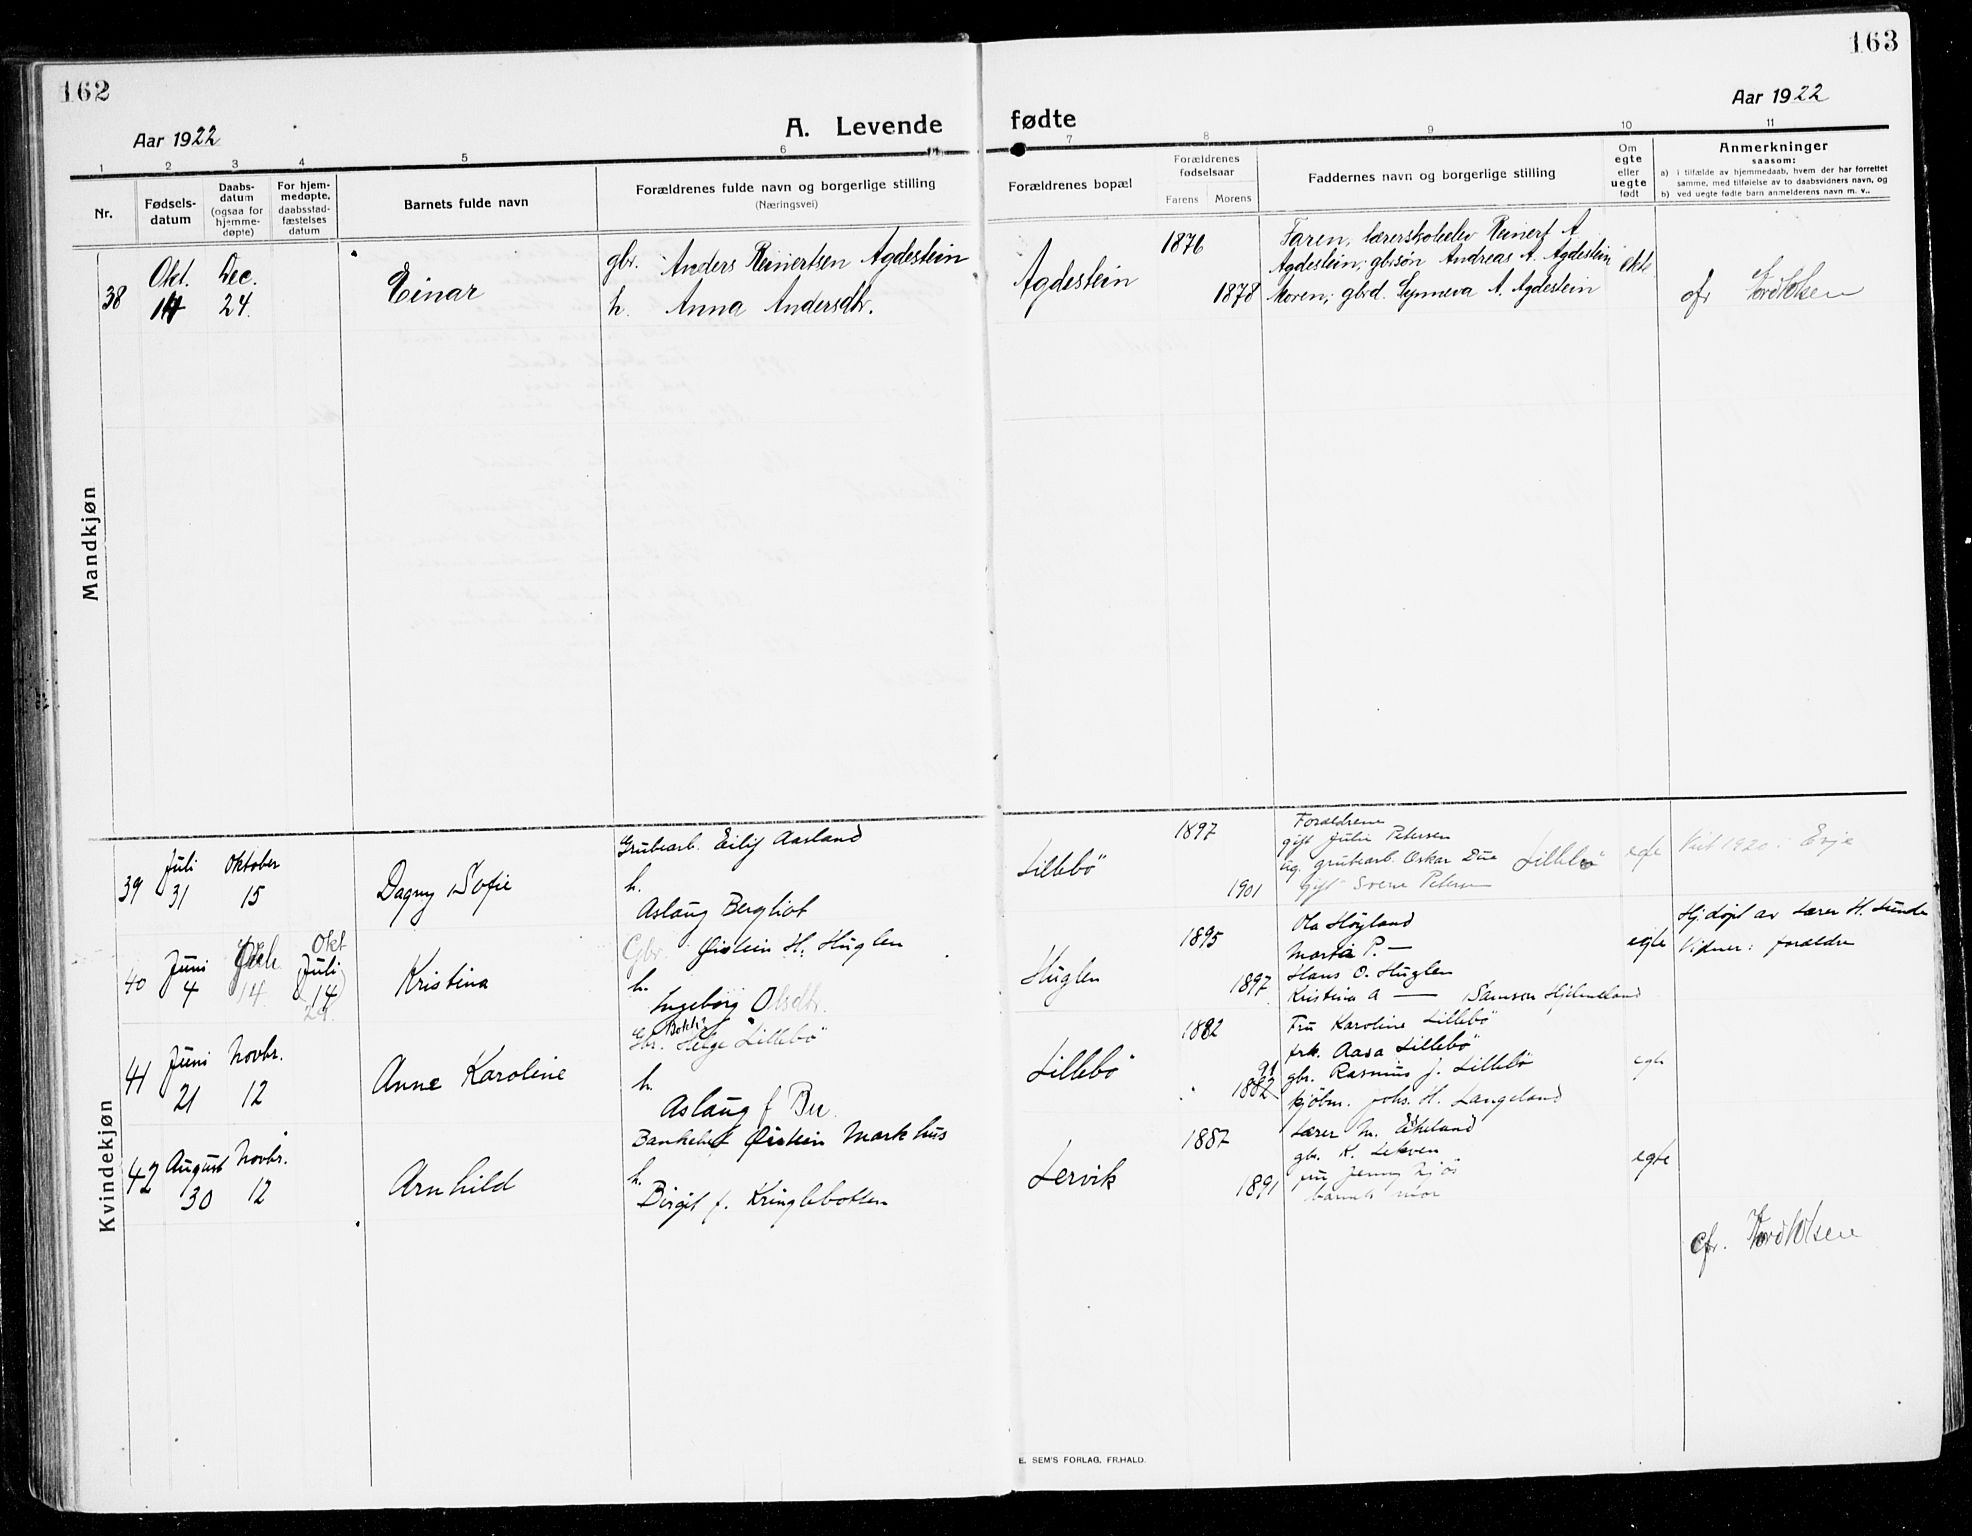 162
163
Aar 1922
A. Levende fødte
Aar 1922
1 2 3 4 5 6 7 8 9 10 11
Nr.
Fødsels-
datum
Daabs-
datum
(ogsaa for
hjemme-
døpte)
For hjem-
medøpte,
daabsstad-
fæstelses
datum
Barnets fulde navn
Forældrenes fulde navn og borgerlige stilling
(Næringsvei)
Forældrenes bopæl
Forældrenes
fødselsaar
Farens Morens
Faddernes navn og borgerlige stilling
Om
egte
eller
uegte
født
Anmerkninger
saasom:
a) i tilfælde av hjemmedaab, hvem der har forrettet
samme, med tilføielse av to daabsvidners navn, og
b) ved uegte fødte barn anmelderens navn m. v..
Mandkjøn
38
Okt.
14
Dec.
24
Einar
gbr. Anders Reinertsen Agdestein
h. Anna Andersdtr.
Agdestein
1876
1878
Faren, lærerskoleelev Reinert A
Agdestein, gbrsøn Andreas A. Agdestein
Moren, gbrd. Synneva A. Agdestein
ekte
Kvindekjøn
39
Juli
31
Oktober
15
Dagny Sofie
Grubearb. Eilif Aasland
h.
Aslaug Bergliot
Lillebö
1897
1901
Forældrene
gift Julie Petersen
ug. grubearb. Oskar Due Lillebö
gift Petersen
Viet 1920 i Evje
40
Juni
4
14
Okt
Juli
14
29.
Kristina
Gbr. Øistein H. Huglen
h.
Ingeborg Olsdtr.
Huglen
1895
1897
Ola Høyland
Marta P. —
Hans O. Huglen
Kristina A — Samson Hjelmeland
egte
Hj.døpt av Lærer H. Sunde
Vidner: forældre
41
Juni
21
Novbr.
12
Anne Karoline
Gbr. Helge Lillebö
h.
Aslaug f.
Lillebö
1882
91
1882
Fru Karoline Lillebö
frk. Aasa Lillebö
gbr. Rasmus J. Lillebö
kjøbm. Johs. H. Langeland
egte
42
August
30
Novbr.
12
Arnhild
Øistein Markhus
h.
Birgit f. Kringlebotten
Lervik
1887
1891
Lærer M. Eikeland
gbr. K. Lekven
fru Jenny
barnets mor
egte
E. SEM'S FORLAG, FR.HALD.